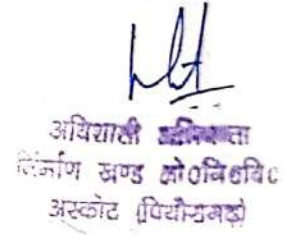 अधिशासी अभियन्ता
निर्माण खण्ड लो०नि०वि०
अस्कोट (पिथौरागढ़)